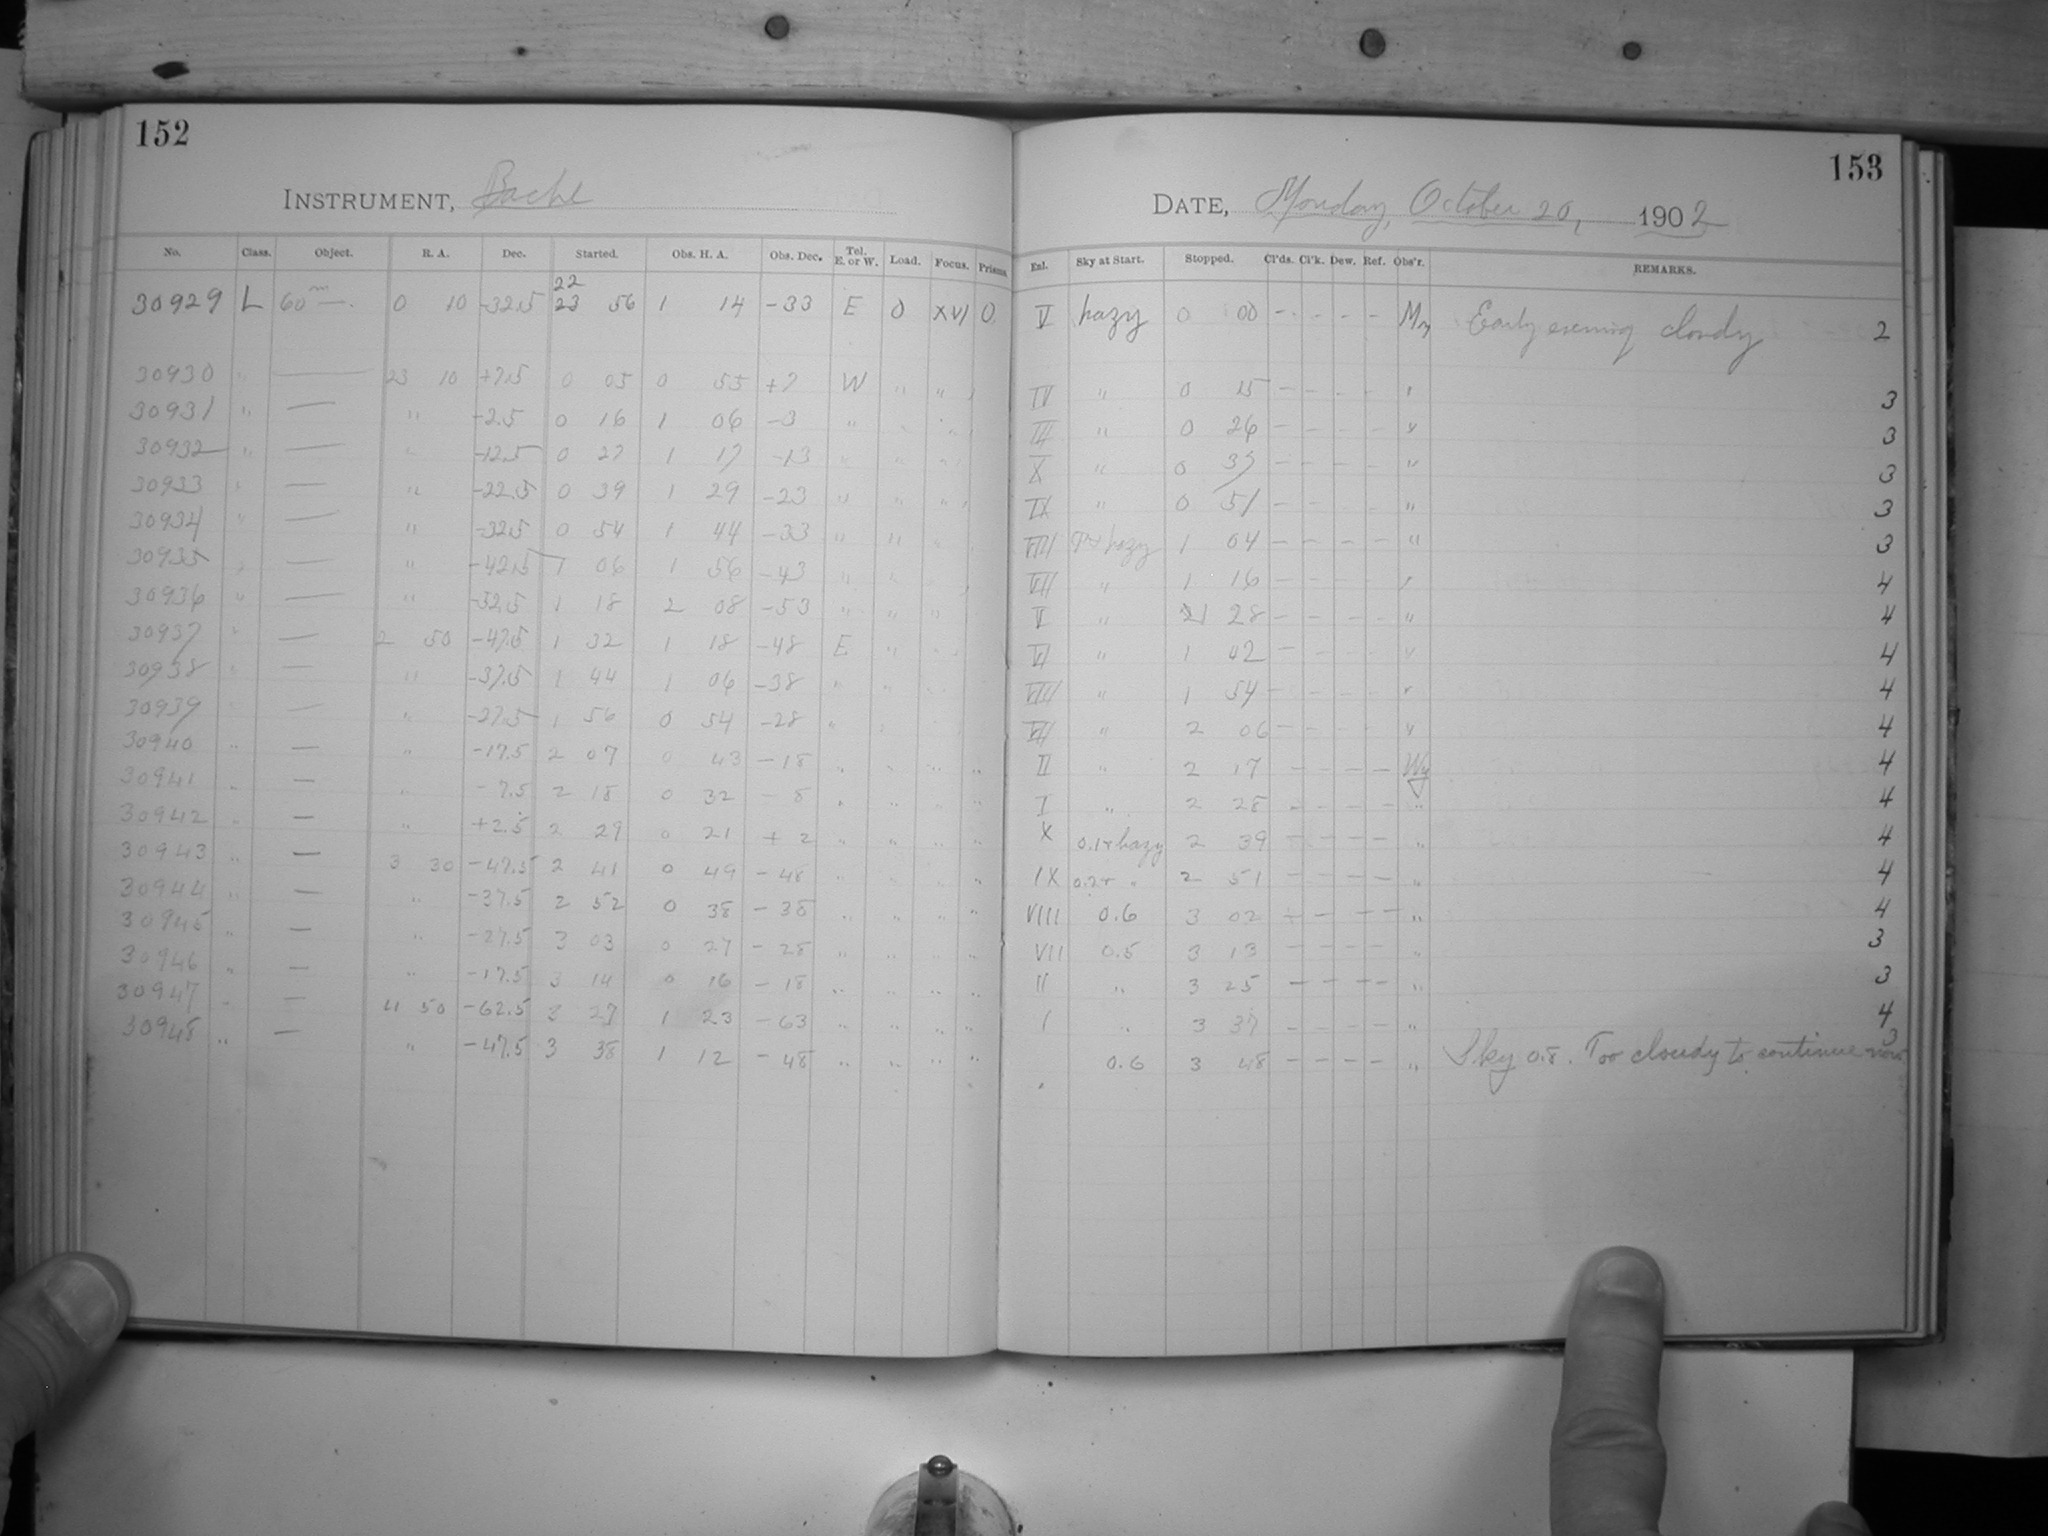 152
INSTRUMENT, Bache
No. Class. Object. R. A. Dec. Started. Obs. H. A. Obs. Dec. Tel. E. or W. Load. Focus. Prisms
22
30929 L 60m —. 0 10 -32.5 23 56 1 14 -33 E 0 XVI 0
30930 " — 23 10 +7.5 0 05 0 55 +7 W " " "
30931 " — " -2.5 0 16 1 06 -3 " " "
30932 " — " -12.5 0 27 1 17 -13 " " "
30933 " — " -22.5 0 39 1 29 -23 " " " "
30934 " — " -32.5 0 54 1 44 -33 " " "
30935 " — " -42.5 1 06 1 56 -43 " " "
30936 " — " -52.5 1 18 2 08 -53 " " "
30937 " — 2 50 -47.5 1 32 1 18 -48 E " "
30938 " — " -37.5 1 44 1 06 -38 " " "
30939 " — " -27.5 1 56 0 54 -28 " "
30940 " — " -17.5 2 07 0 43 -18 " " " "
30941 " — " -7.5 2 18 0 32 -8 " " " "
30942 " — " +2.5 2 29 0 21 +2 " " " "
30943 " — 3 30 -47.5 2 41 0 49 -48 " " " "
30944 " — " -37.5 2 52 0 38 -38 " " " "
30945 " — " -27.5 3 03 0 27 -28 " " " "
30946 " — " -17.5 3 14 0 16 -18 " " " "
30947 " — 4 50 -62.5 3 27 1 23 -63 " " " "
30948 " — " -47.5 3 38 1 12 -48 " " " "
153
DATE, Monday, October 20, 1902
Enl. Sky at Start. Stopped. Cl'ds. Cl'k. Dew. Ref. Obs'r. REMARKS.
V hazy 0 00 - - - - My Early evening cloudy 2
IV " 0 15 - - - - " 3
III " 0 26 - - - - " 3
X " 0 37 - - - - " 3
IX " 0 51 - - - - " 3
VIII hazy 1 04 - - - - " 3
VII " 1 16 - - - - " 4
V " 1 28 - - - - " 4
VI " 1 42 - - - - " 4
VIII " 1 54 - - - - " 4
VII " 2 06 - - - - " 4
II " 2 17 - - - - 4
I " 2 28 - - - - " 4
X 0.1+ hazy 2 39 - - - - " 4
IX 0.2+ " 2 51 - - - - " 4
VIII 0.6 3 02 - - - - " 4
VII 0.5 3 13 - - - - " 3
II " 3 25 - - - - " 3
I " 3 37 - - - - " 4
0.6 3 48 - - - - " Sky 0.8. Too cloudy to continue now 3